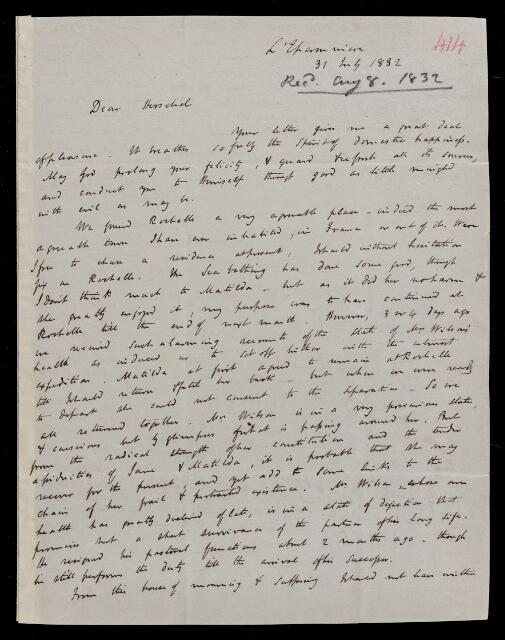 414
31 July 1832
Recd. Aug 8. 1832
Dear Herschel
Your letter gives me a great deal
of pleasure. It breathes so fully the spirit of domestic happiness.
May God prolong your felicity, & guard & refresh all its sources,
and conduct you to Himself through good as little mingled
with evil as may be.
We found Rochelle a very agreeable place – indeed the most
agreeable town I have ever inhabited, in France or out of it. Were
I free to chuse a residence at present, I should without hesitation
fix on Rochelle. The Sea bathing has done some good, though
I don't think much to Matilda – but as it did her no harm &
she greatly enjoyed it, my purpose was to have continued at
Rochelle till the end of next month. However, 3 or 4 days ago
we received such alarming accounts of the state of Mrs Wilson's
health as induced us to set off hither with the utmost
expedition. Matilda at first agreed to remain at Rochelle
till I should return to fetch her back – but when we were ready
to depart she could not consent to the separation – So we
all returned together. Mrs Wilson is in a very precarious state,
& conscious but by glimpses of what is passing around her. But
from the radical strength of her constitution and the tender
assiduities of Jane & Matilda, it is probable that she may
recover for the present, and yet add to some links to the
chain of her frail & protracted existence. Mr Wilson, whose own
health has greatly declined of late, is in a state of dejection that
promises but a short survivance of the partner of his long life.
He resigned his pastoral functions about 2 months ago – though
he still performs the duty till the arrival of his successor.
From this house of mourning & suffering I should not have written